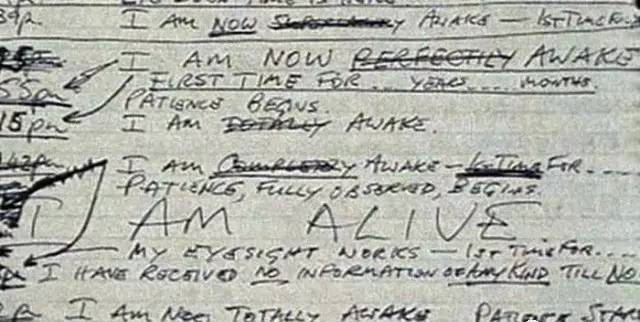 I AM NOW AWAKE — 1ST TIME FOR
I AM NOW PERFECTLY AWAKE
55pm FIRST TIME FOR .... YEARS .... MONTHS
PATIENCE BEGINS.
15pm I AM TOTALLY AWAKE.
I AM COMPLETELY AWAKE — 1ST TIME FOR....
PATIENCE, FULLY OBSERVED, BEGINS.
I AM ALIVE
MY EYESIGHT WORKS — 1ST TIME FOR....
I HAVE RECEIVED NO INFORMATION OF ANY KIND TILL NO
I AM NOW TOTALLY AWAKE